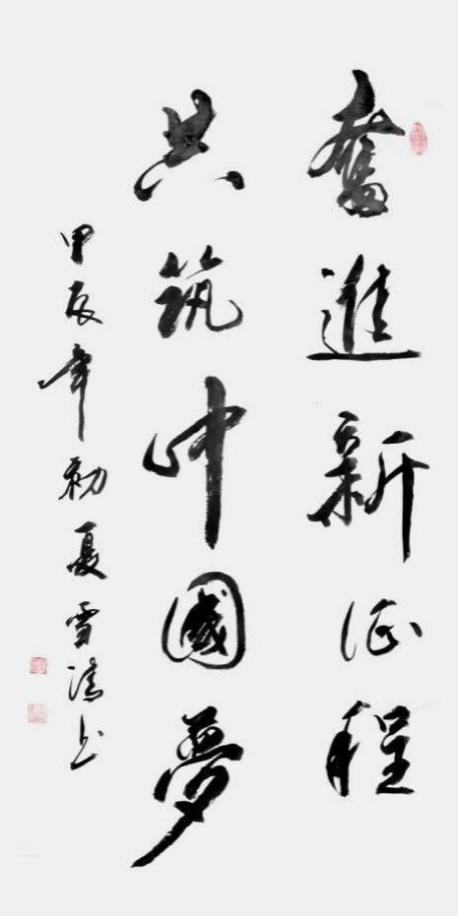 奮進新征程
共筑中國夢
甲辰年初夏雪 书